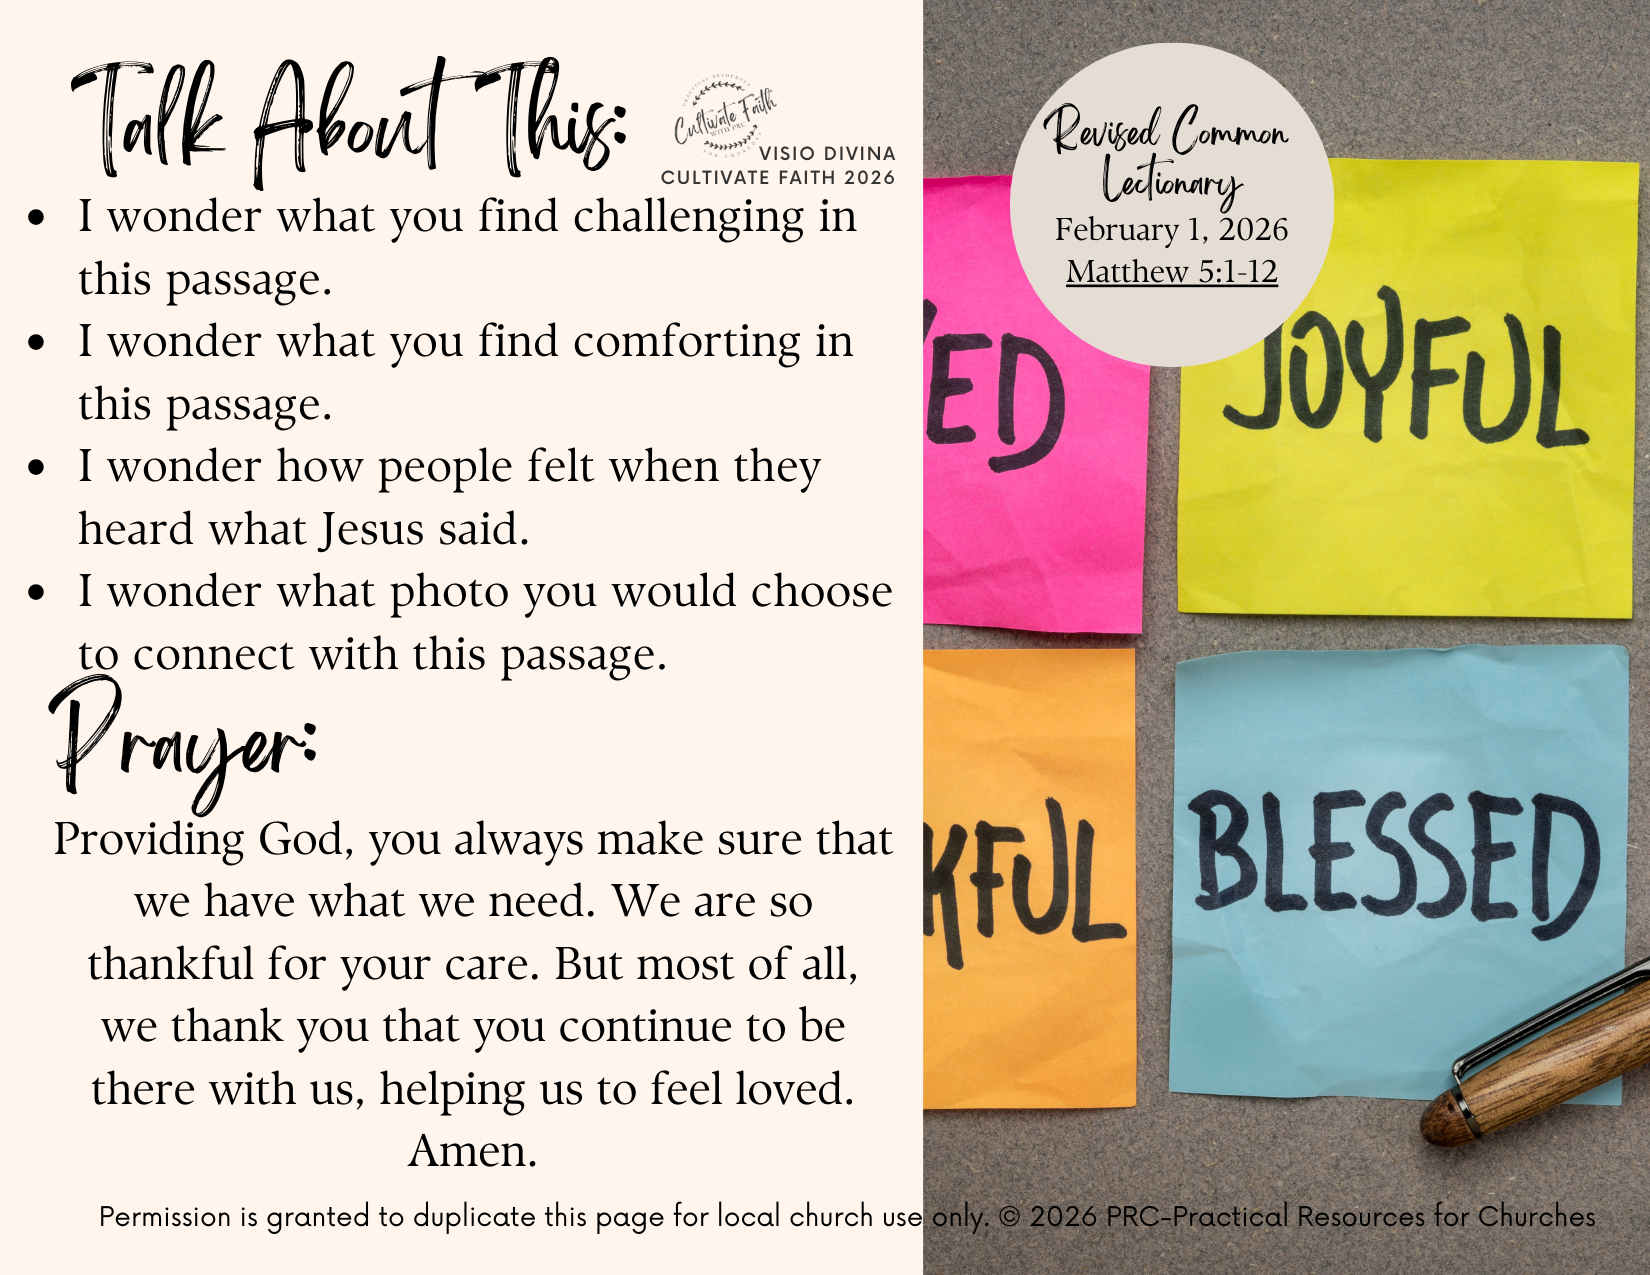 Talk About This:
PRACTICAL RESOURCES
Cultivate Faith
WITH PRC
FOR CHURCHES
VISIO DIVINA
CULTIVATE FAITH 2026
• I wonder what you find challenging in
this passage.
• I wonder what you find comforting in
this passage.
• I wonder how people felt when they
heard what Jesus said.
• I wonder what photo you would choose
to connect with this passage.
Prayer:
Providing God, you always make sure that
we have what we need. We are so
thankful for your care. But most of all,
we thank you that you continue to be
there with us, helping us to feel loved.
Amen.
Revised Common
Lectionary
February 1, 2026
Matthew 5:1-12
ED
JOYFUL
KFUL
BLESSED
Permission is granted to duplicate this page for local church use only. © 2026 PRC-Practical Resources for Churches